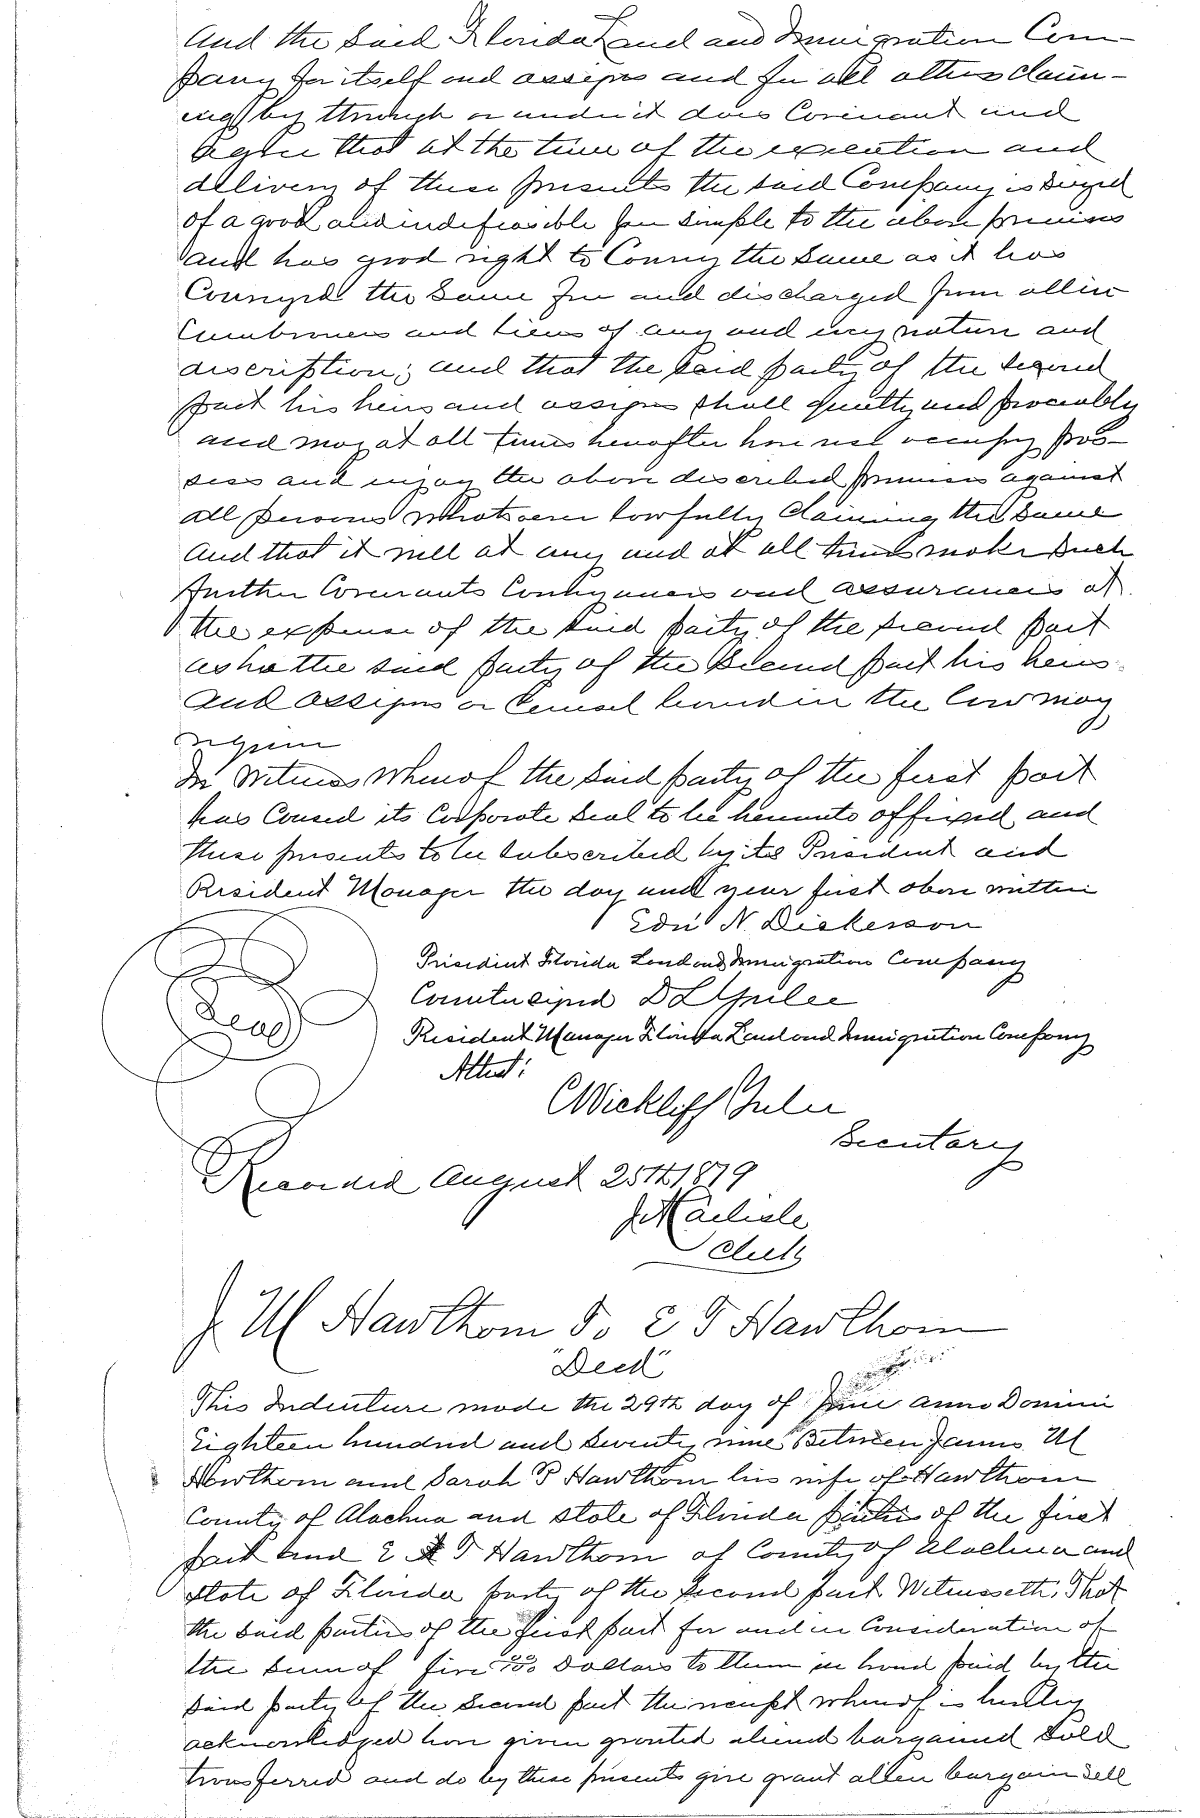 And the said Florida Land and Immigration Com-
pany for itself and assigns and for all others claim-
ing by through or under it does Covenant and
Agree that at the time of the execution and
delivery of these presents the said Company is seized
of a good and indefeasible fee simple to the above premises
and has good right to Convey the same as it has
Conveyed the same free and discharged from all in
Cumbrances and liens of any and every nature and
discription; and that the said party of the second
part his heirs and assigns shall quietly and peaceably
and may at all times hereafter have use occupy pos-
sess and enjoy the above described premises against
all persons whatsoever lawfully Claiming the same
And that it will at any and at all times make such
further Covenants Conveyances and assurances at
the expense of the said party of the second part
as he the said party of the second part his heirs
and assigns or Counsel learned in the law may
require
In Witness Whereof the said party of the first part
has Caused its Corporate Seal to be hereunto affixed and
these presents to be subscribed by its President and
Resident Manager the day and year first above written
Edn N. Dickerson
President Florida Land and Immigration Company
Seal
Countersigned D L Yulee
Resident Manager Florida Land and Immigration Company
Attest:
C Wickliff Yulee
Secretary
Recorded August 25th 1879
Clerk
J. M Hawthorn To E T Hawthorn
"Deed"
This Indenture made the 29th day of June anno Domini
Eighteen hundred and seventy nine Between James M
Hawthorn and Sarah P Hawthorn his wife of Hawthorn
County of Alachua and state of Florida parties of the first
part and E T Hawthorn of County of Alachua and
state of Florida party of the second part Witnesseth, That
the said parties of the first part for and in Consideration of
the sum of five Dollars to them in hand paid by the
said party of the second part the receipt whereof is hereby
acknowledged have given granted aliened bargained sold
transferred and do by these presents give grant alien bargain sell